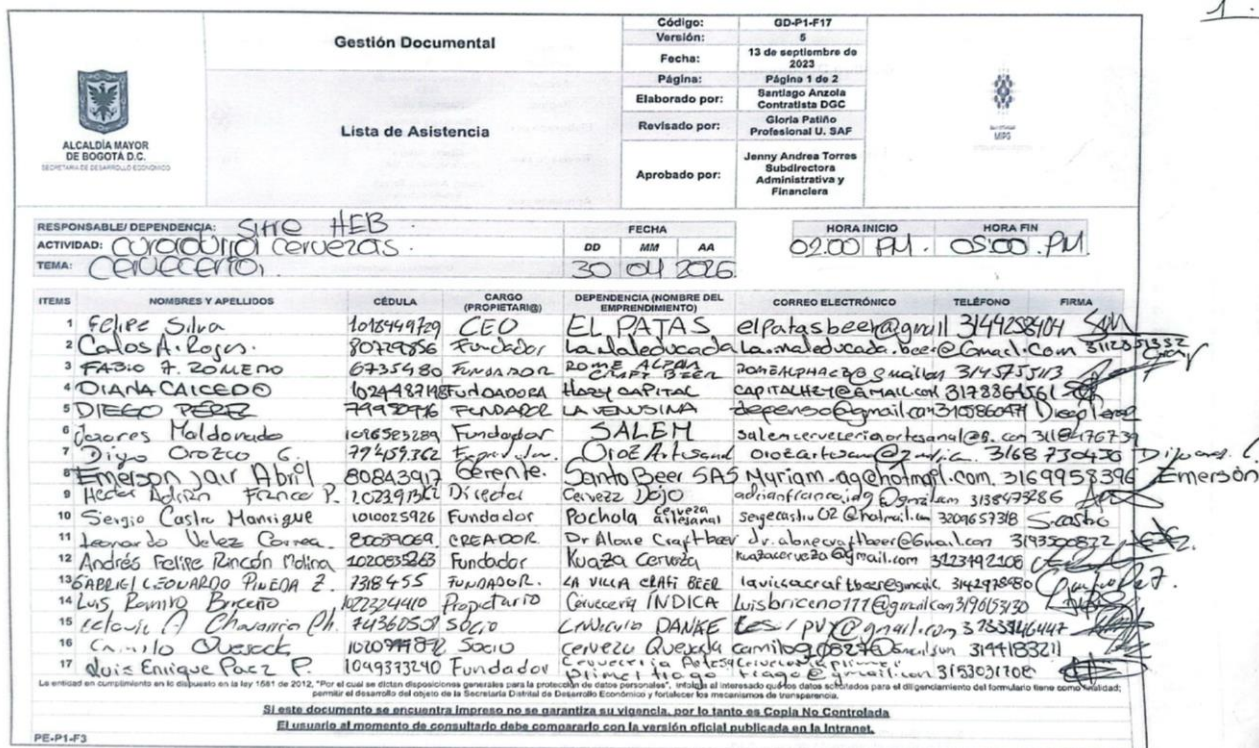 1.
Gestión Documental
Código: GD-P1-F17
Versión: 5
Fecha: 13 de septiembre de 2023
Página: Página 1 de 2
Elaborado por: Santiago Anzola Contratista DGC
Lista de Asistencia
Revisado por: Gloria Patiño Profesional U. SAF
Aprobado por: Jenny Andrea Torres Subdirectora Administrativa y Financiera
ALCALDÍA MAYOR
DE BOGOTÁ D.C.
SECRETARÍA DE DESARROLLO ECONÓMICO
MIPG
RESPONSABLE/ DEPENDENCIA: HEB. FECHA HORA INICIO HORA FIN
ACTIVIDAD: curaduria cervezas. DD MM AA 02:00 PM. 05:00 PM.
TEMA: Cerveceria, 30 04 2026.
ITEMS NOMBRES Y APELLIDOS CÉDULA CARGO (PROPIETARI@) DEPENDENCIA (NOMBRE DEL EMPRENDIMIENTO) CORREO ELECTRÓNICO TELÉFONO FIRMA
1 Felipe Silva 1018449729 CEO EL PATAS elpatasbeer@gmail 3144258404
2 Carlos A. Rojas. 80729856 Fundador La Maleducada La.maleducada.beer@Gmail.Com
3 FABIO A. ROMERO 6735480 FUNDADOR ROME ALPHA CRAFT BEER
4 DIANA CAICEDO FUNDADORA HAZY CAPITAL 3178364561
5 DIEGO PÉREZ FUNDADOR LA VENUSINA depenso@gmail.com Diego Perez
6 Maldonado 1096583289 Fundador SALEM salemcerveceriaartesanal@g.com 3118476739
7 Diego Orozco G. Oroz Artesanal 3168730430
8 Emerson Jair Abril 80843917 Gerente. Santo Beer SAS Myriam-ag@hotmail.com. 3169958396 Emerson
9 Hector Adrián Franco P. Director Cerveza Dojo adrianfranco.ing@gmail.com 3138473286
10 Sergio Castro Manrique 1010025926 Fundador Pochola cerveza artesanal sergecastro02@hotmail.com 3209657318 S.castro
11 Leonardo Velez Correa. 80039069. CREADOR. Dr Alone Craftbeer dr.alonecraftbeer@Gmail.com 3193500822
12 Andrés Felipe Rincón Molina 1020835263 Fundador Kuaza Cerveza kuazacerveza@gmail.com 3123492106
13 GABRIEL LEONARDO PINEDA Z. 7318455 FUNDADOR. LA VILLA CRAFT BEER lavillacraftbeer@gmail 3142978480
14 Luis Ramiro Briceño Propietario Cervecería ÍNDICA luisbriceno777@gmail.com
15 Chavarrio Ph. 74360509 SOCIO DANKE
16 Camilo Quesada Socio Cerveza Quesada camiloq0827@gmail.com 3144183211
17 Luis Enrique Paez P. 1049373240 Fundador Cerveceria primer trago 3153031708
La entidad en cumplimiento en lo dispuesto en la ley 1581 de 2012, "Por el cual se dictan disposiciones generales para la protección de datos personales", informa al interesado que los datos solicitados para el diligenciamiento del formulario tiene como finalidad;
permitir el desarrollo del objeto de la Secretaría Distrital de Desarrollo Económico y fortalecer los mecanismos de transparencia.
Si este documento se encuentra impreso no se garantiza su vigencia, por lo tanto es Copia No Controlada
El usuario al momento de consultarlo debe compararlo con la versión oficial publicada en la Intranet.
PE-P1-F3